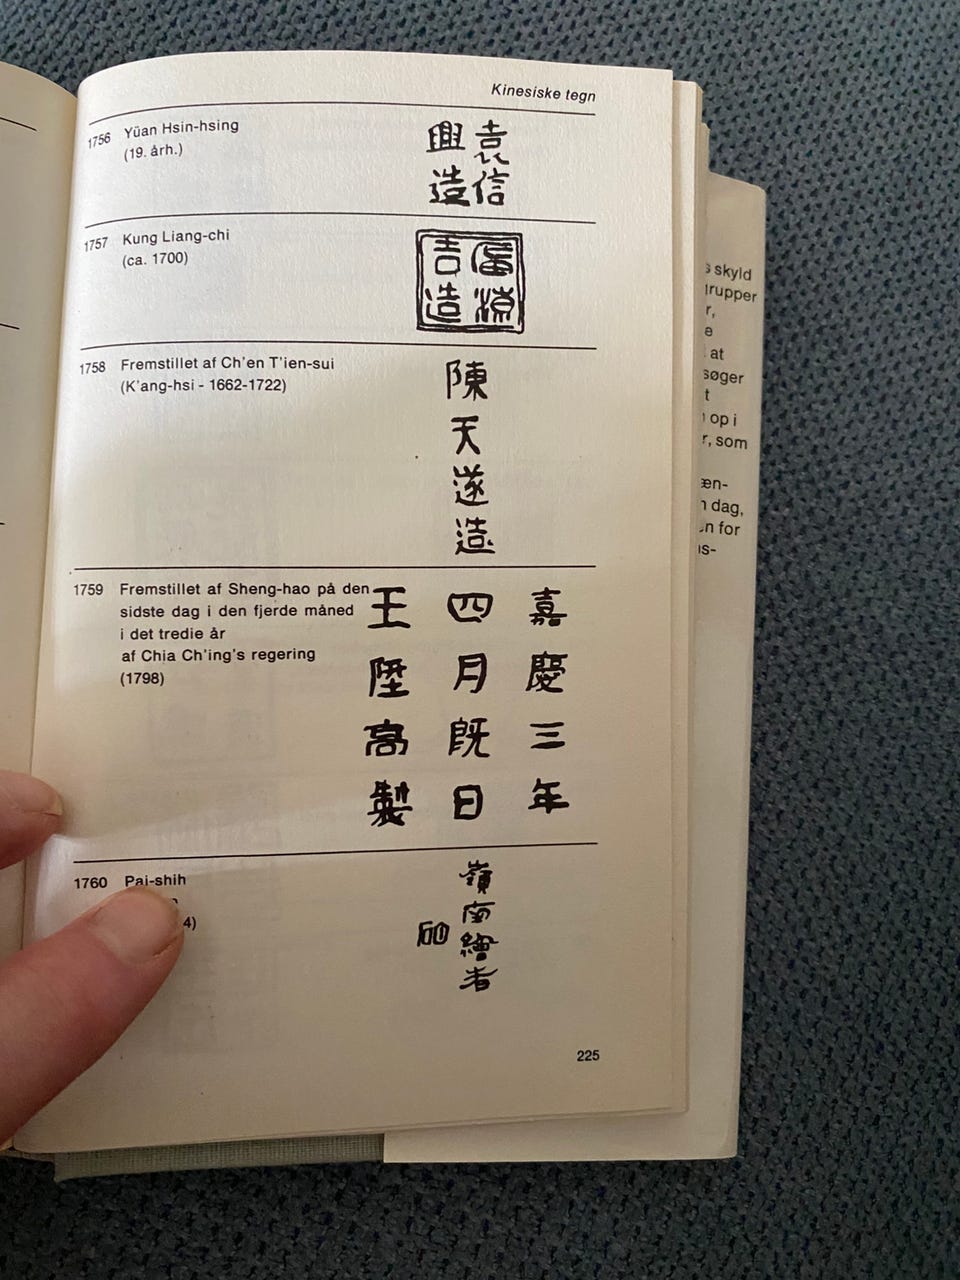 Kinesiske tegn
1756 Yüan Hsin-hsing
(19. årh.)
袁信
興造
1757 Kung Liang-chi
(ca. 1700)
吉造
1758 Fremstillet af Ch'en T'ien-sui
(K'ang-hsi - 1662-1722)
陳天遂造
1759 Fremstillet af Sheng-hao på den
sidste dag i den fjerde måned
i det tredie år
af Chia Ch'ing's regering
(1798)
嘉慶三年
四月既日
王陞高製
1760 Pai-shih
4)
嶺南繪者
225
s skyld
grupper
r,
e
at
søger
t
op i
r, som
æn-
n dag,
n for
s-